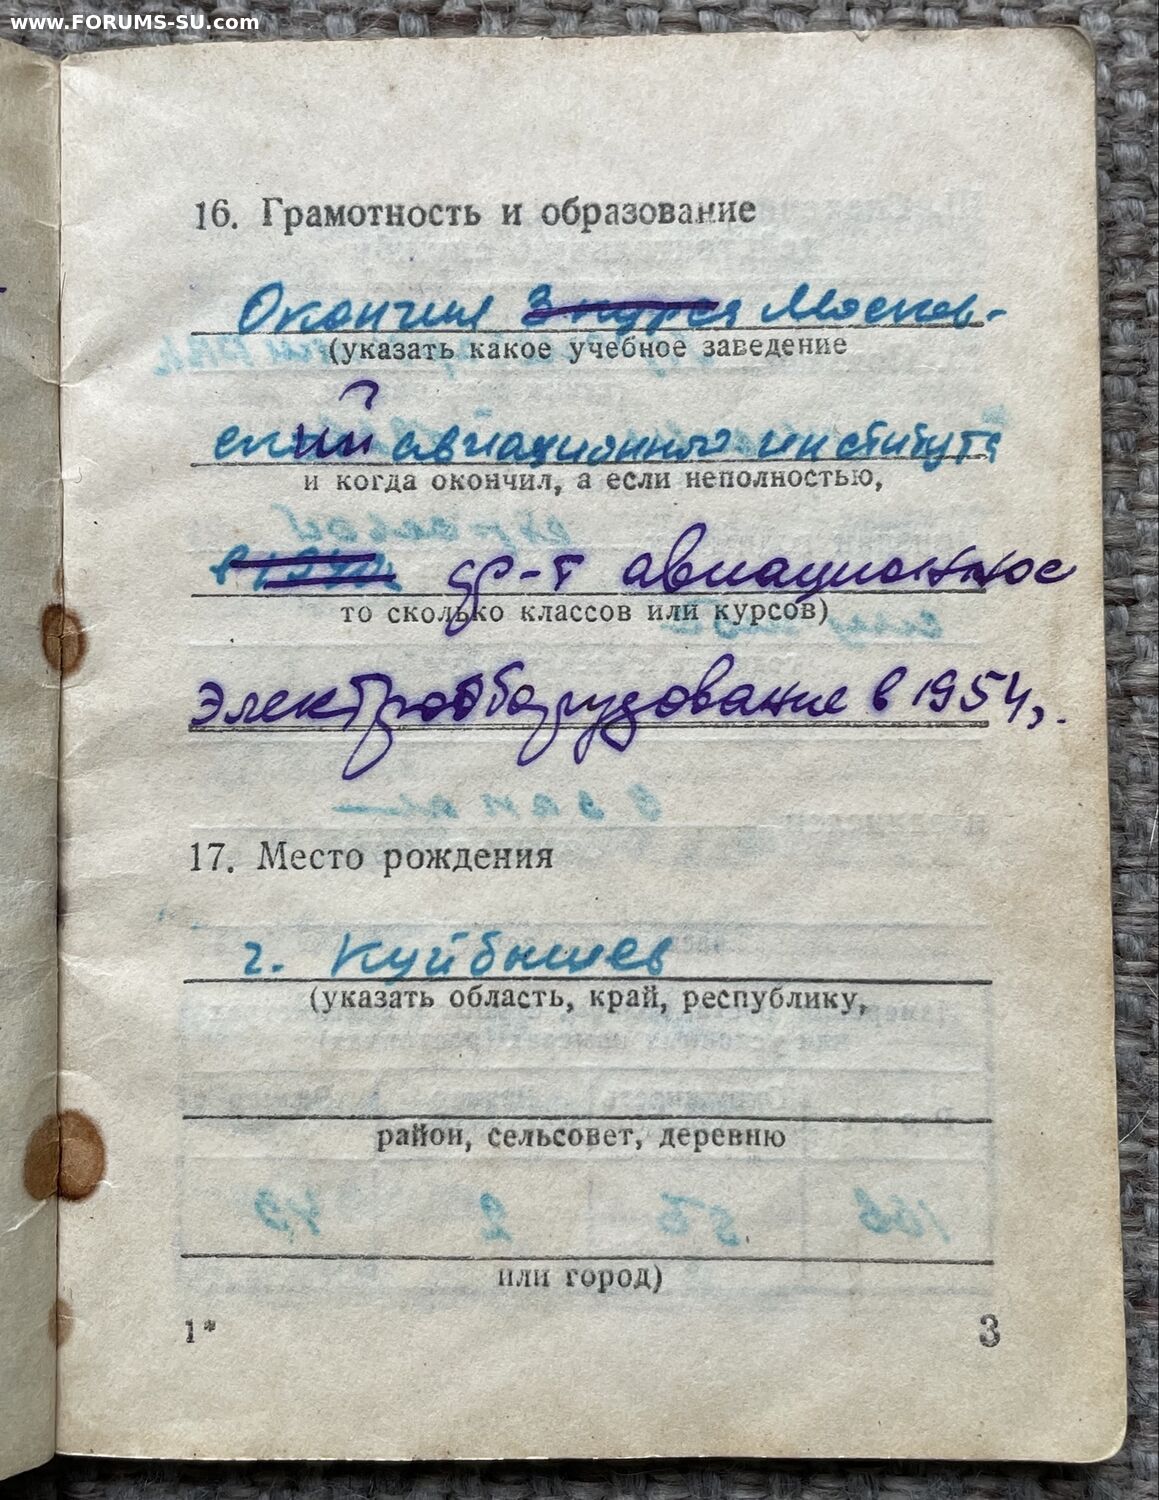 www.FORUMS-SU.com
16. Грамотность и образование
Окончил 3 курса Москов-
(указать какое учебное заведение
ский авиационного института
и когда окончил, а если неполностью,
ф-т авиационное
то сколько классов или курсов)
электрооборудование в 1954г.
17. Место рождения
г. Куйбышев
(указать область, край, республику,
район, сельсовет, деревню
или город)
1*
3